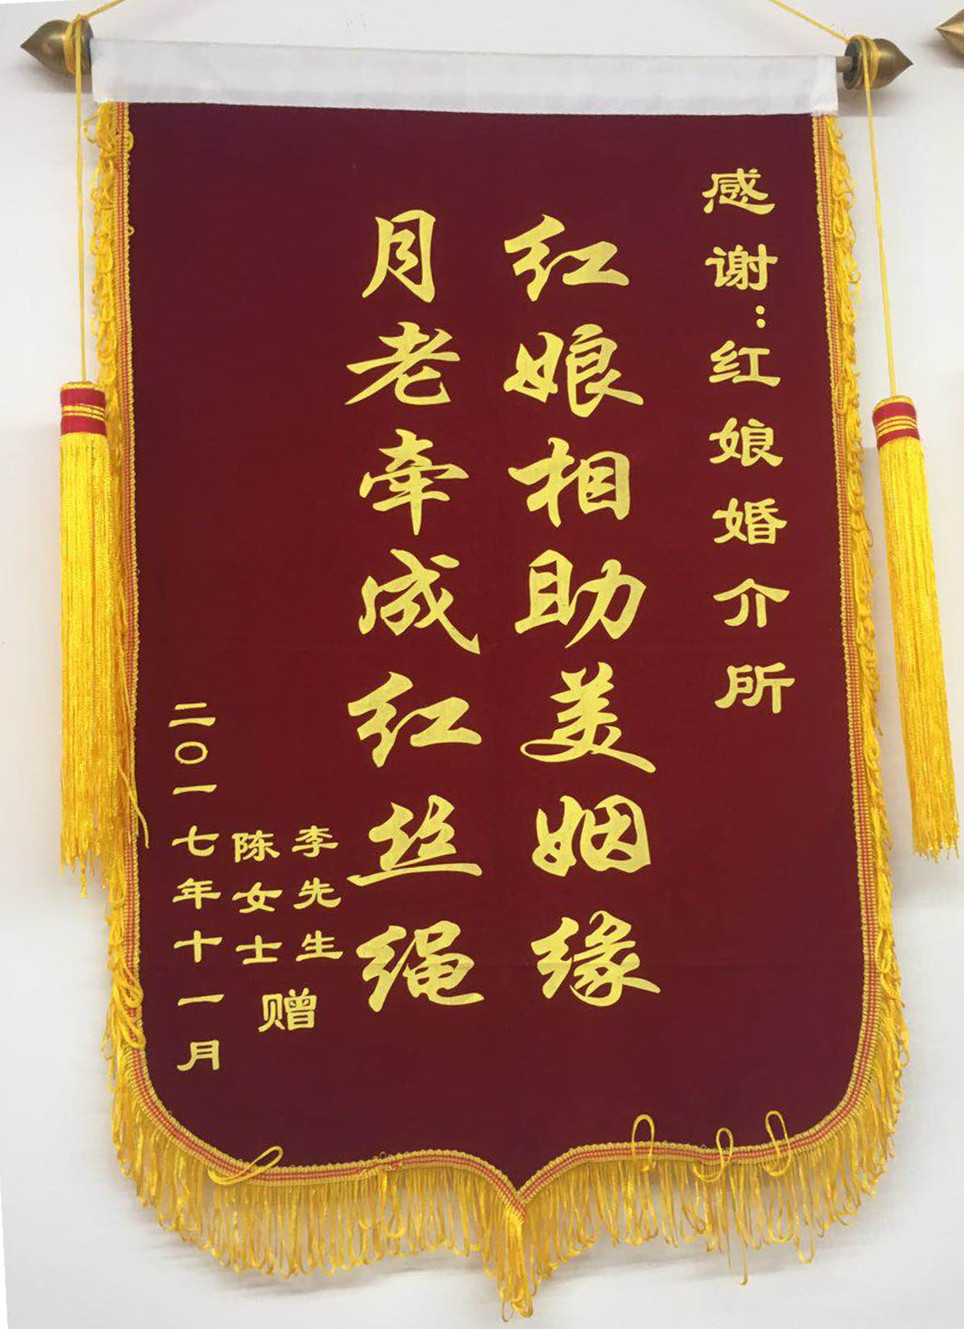 感谢：红娘婚介所
红娘相助美姻缘
月老牵成红丝绳
李先生
陈女士
赠
二〇一七年十一月